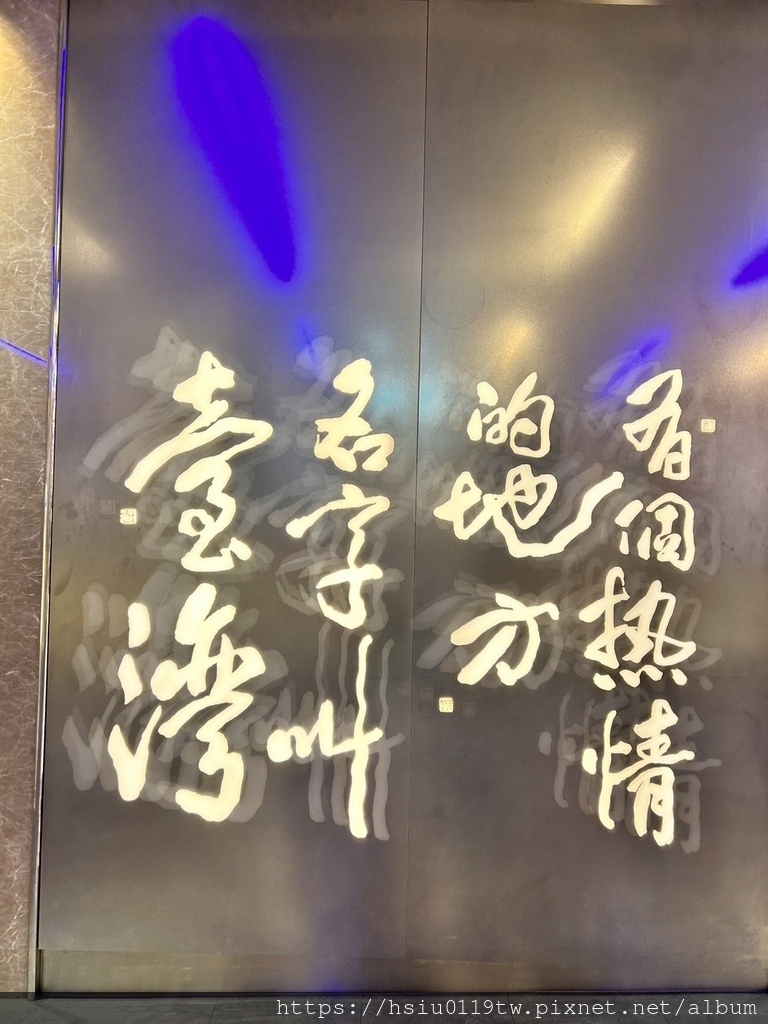 有個热情
的地方
名字叫
臺灣
https://hsiu0119tw.pixnet.net/album